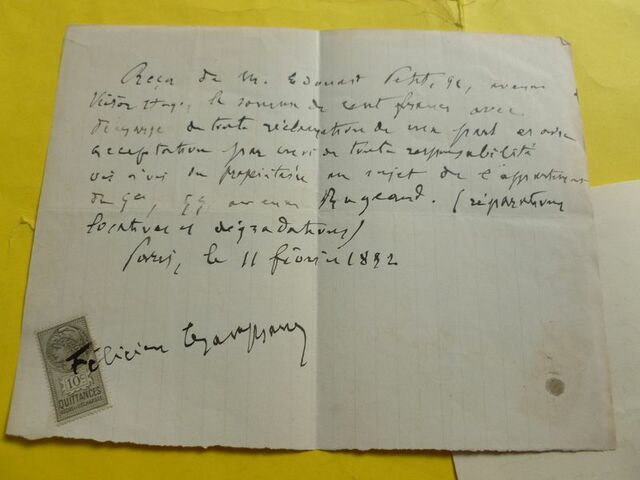 Reçu de M. Edouard Petit, 92, avenue
Victor Hugo, la somme de cent francs avec
décharge de toute réclamation de ma part et avec
acceptation par moi de toute responsabilité
vis à vis du propriétaire au sujet de l'appartement
du 99, avenue Bugeaud. (réparations
locatives et dégradations)
Paris, le 11 février 1892
Félicien Champsaur
10c
QUITTANCES